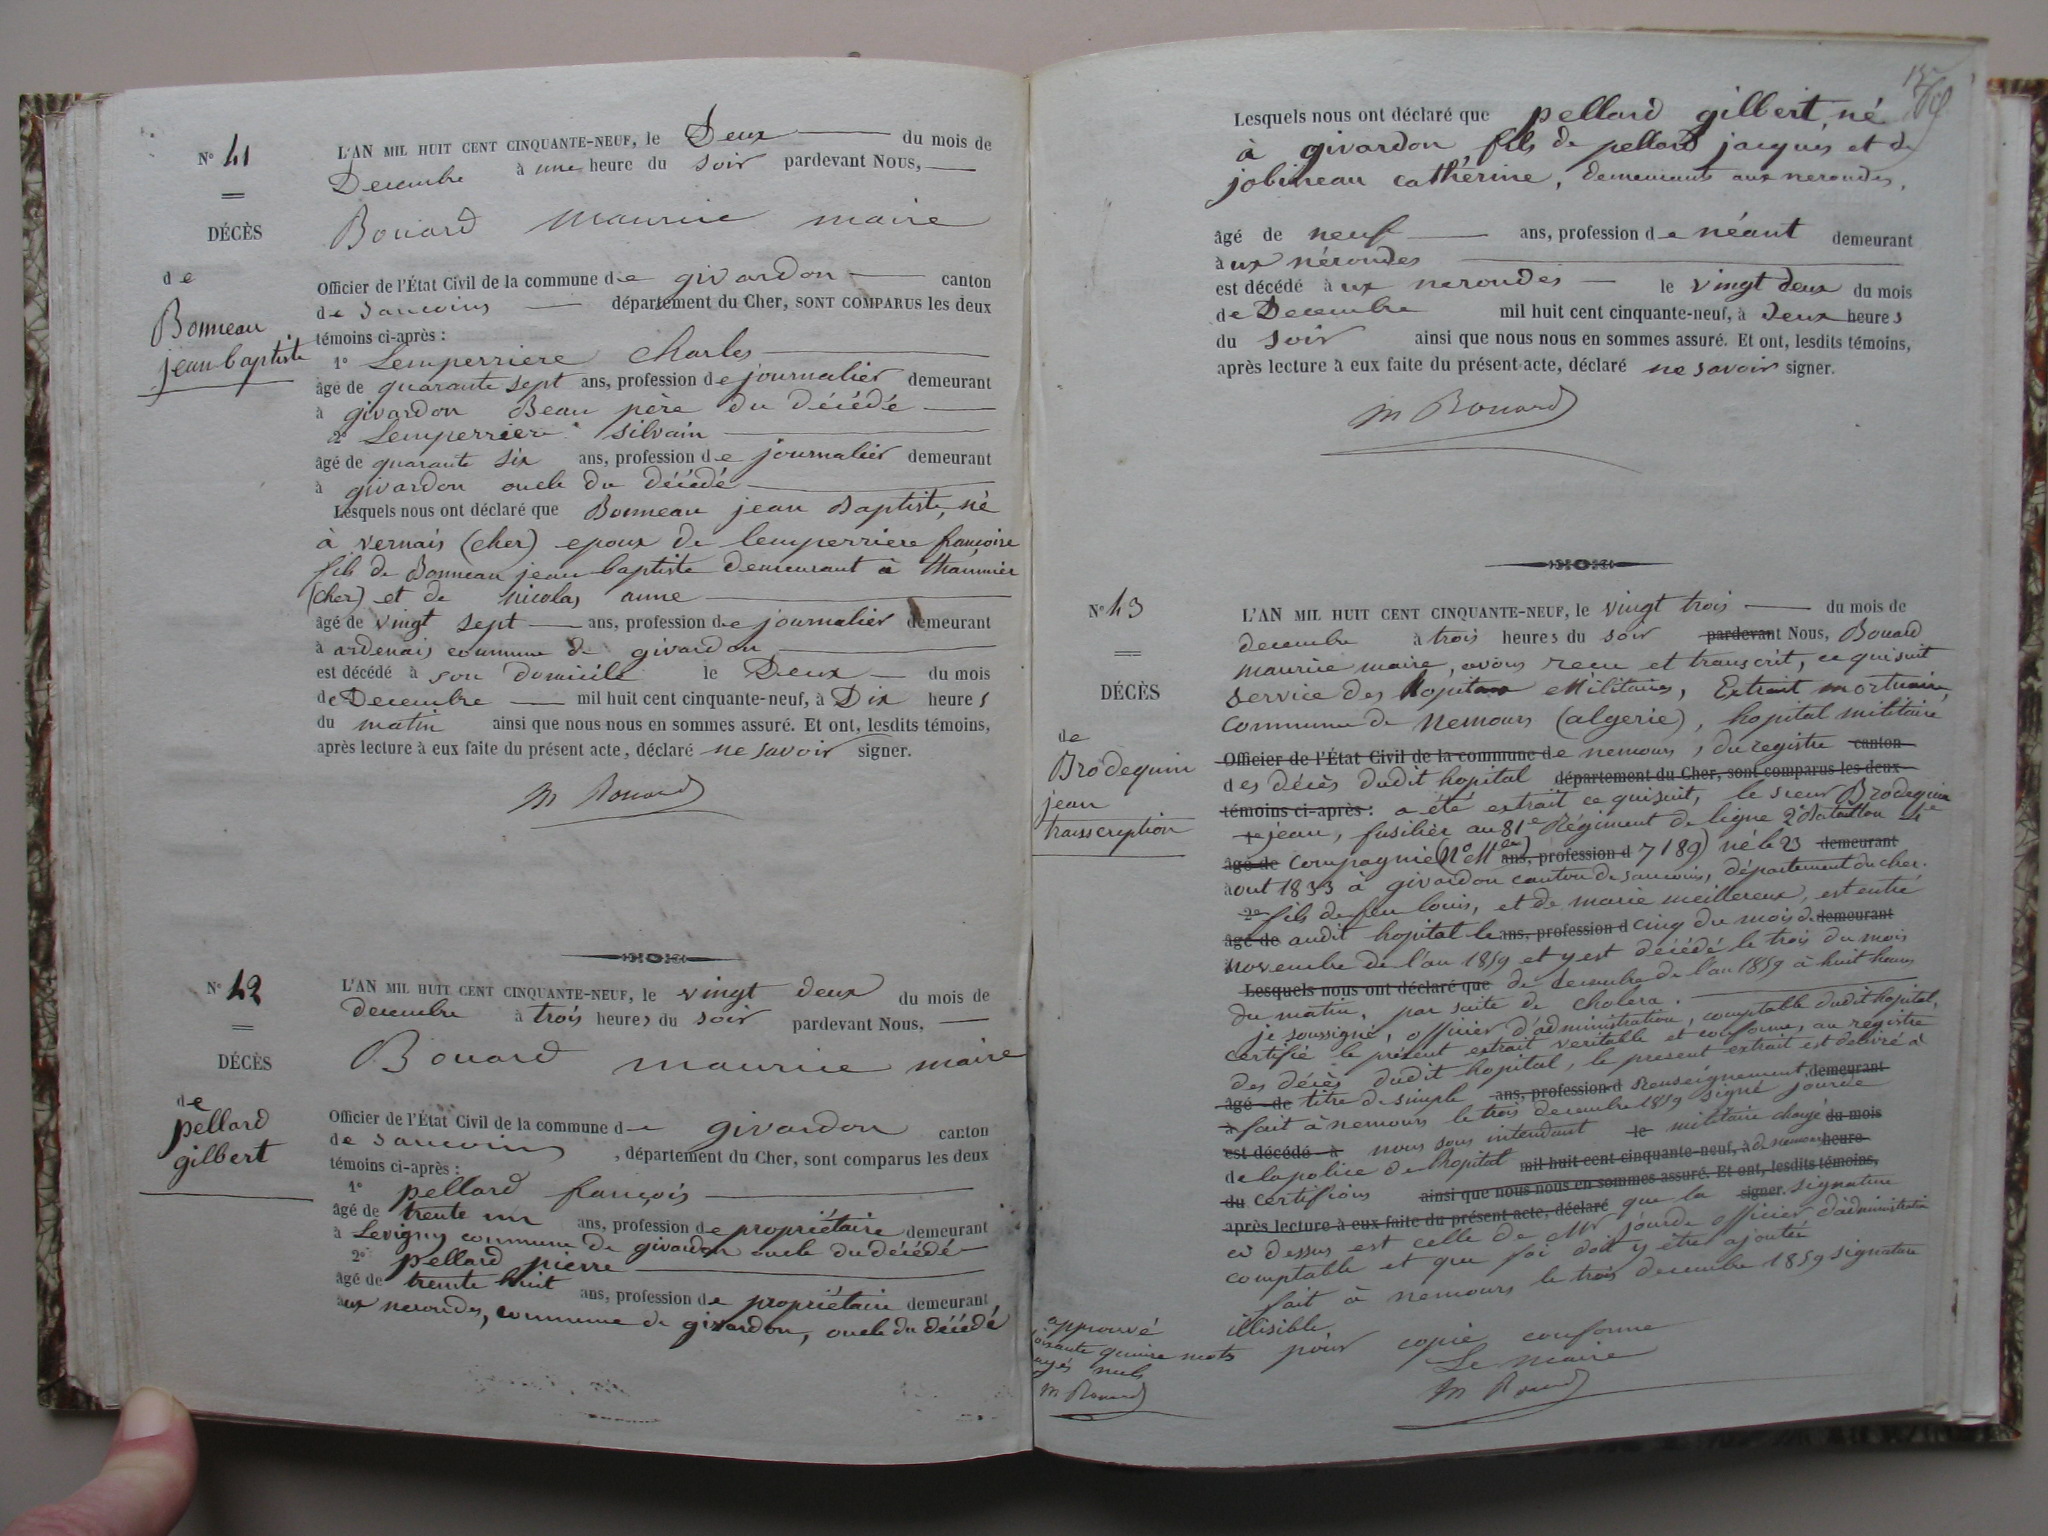 N° 41
DÉCÈS
de
Bonneau
jean baptiste
L'AN MIL HUIT CENT CINQUANTE-NEUF, le Deux du mois de
Decembre à une heure du soir pardevant NOUS,
Bouard maurice maire
Officier de l'État Civil de la commune de givardon canton
de Sancoins département du Cher, SONT COMPARUS les deux
témoins ci-après :
1° Lemperriere Charles
âgé de quarante sept ans, profession de journalier demeurant
à givardon Beau père du décédé
2° Lemperriere silvain
âgé de quarante six ans, profession de journalier demeurant
à givardon oncle du décédé
Lesquels nous ont déclaré que Bonneau jean Baptiste, né
à vernais (cher) epoux de lemperriere francoise
fils de Bonneau jean baptiste demeurant à thaumier
(cher) et de nicolas anne
âgé de vingt sept ans, profession de journalier demeurant
à ardenais commune de givardon
est décédé à son domicile le Deux du mois
de Decembre mil huit cent cinquante-neuf, à Dix heures
du matin ainsi que nous nous en sommes assuré. Et ont, lesdits témoins,
après lecture à eux faite du présent acte, déclaré ne savoir signer.
M Bouard
N° 42
DÉCÈS
de
pellard
gilbert
L'AN MIL HUIT CENT CINQUANTE-NEUF, le vingt deux du mois de
decembre à trois heures du soir pardevant Nous,
Bouard maurice maire
Officier de l'État Civil de la commune de givardon canton
de sancoins, département du Cher, sont comparus les deux
témoins ci-après :
1° pellard françois
âgé de trente un ans, profession de propriétaire demeurant
à Levigny commune de givardon oncle du décédé
2° pellard pierre
âgé de trente huit ans, profession de propriétaire demeurant
aux nerondes, commune de givardon, oncle du décédé
Lesquels nous ont déclaré que pellard gilbert, né
à givardon, fils de pellard jacques et de
jobineau cathérine, demeurants aux nerondes,
âgé de neuf ans, profession de néant demeurant
à ux nérondes
est décédé à ux nerondes le vingt deux du mois
de Decembre mil huit cent cinquante-neuf, à deux heures
du soir ainsi que nous nous en sommes assuré. Et ont, lesdits témoins,
après lecture à eux faite du présent acte, déclaré ne savoir signer.
M Bouard
N° 43
DÉCÈS
de
Brodequin
jean
transcription
L'AN MIL HUIT CENT CINQUANTE-NEUF, le vingt trois du mois de
decembre à trois heures du soir pardevant Nous, Bouard
maurice maire, avons recu et transcrit, ce qui suit
service des hopitaux Militaires, Extrait mortuaire,
commune de Nemours (algerie), hopital militaire
Officier de l'État Civil de la commune de nemours, du registre canton
des décès dudit hopital département du Cher, sont comparus les deux
témoins ci-après : a été extrait ce qui suit, le sieur Brodequin
1° jean, fusilier au 81e Régiment de ligne 2e Bataillon 4e
âgé de compagnie (N° Mle ans, profession d 7189) né le 23 demeurant
à aout 1833 à givardon canton de sancoins, département du cher.
2° fils de feu louis, et de marie meillereux, est entré
âgé de audit hopital le ans, profession d cinq du mois de demeurant
novembre de l'an 1859 et y est décédé le trois du mois
Lesquels nous ont déclaré que de decembre de l'an 1859 à huit heures
du matin, par suite de cholera.
je soussigné, officier d'administration, comptable dudit hopital,
certifié le présent extrait veritable et conforme, au registre
des décès dudit hopital, le present extrait est délivré à
âgé de titre de simple ans, profession d renseignement, demeurant
à fait à nemours le trois decembre 1859 signé jourde
est décédé à nous sous intendant le militaire chargé du mois
de la police de l'hopital mil huit cent cinquante-neuf, à de nemours heure
du certifions ainsi que nous nous en sommes assuré. Et ont, lesdits témoins,
après lecture à eux faite du présent acte, déclaré que la signer. signature
ci dessus est celle de Mr jourde officier d'administration
comptable et que foi doit y être ajoutée
fait à nemours le trois decembre 1859 signature
illisible.
pour copie conforme
Le maire
M Bouard
approuvé
soixante quinze mots
rayés nuls
M Bouard